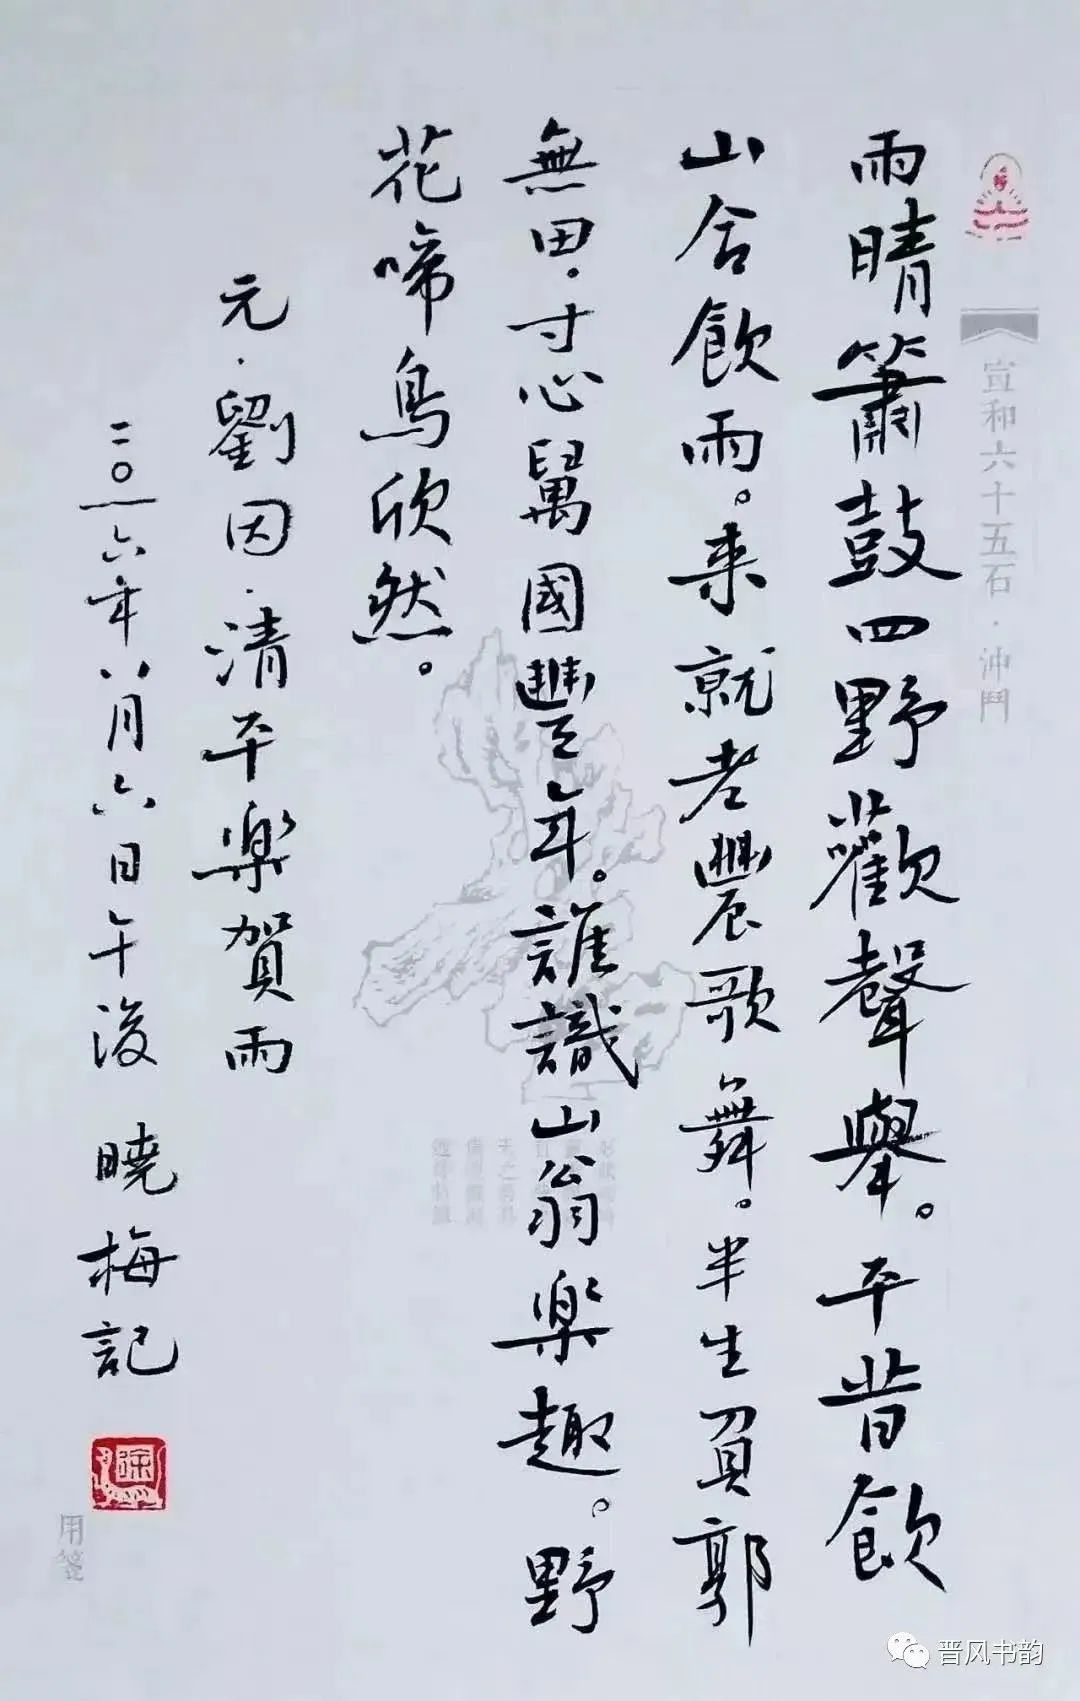 宣和六十五石·沖鬥
雨晴簫鼓四野歡聲舉。平昔飲
山舍飲雨。来就老農歌舞。半生負郭
無田.寸心萬國豐年。誰識山翁樂趣。野
花啼鳥欣然。
元.劉因.清平樂賀雨
二〇一六年八月六日午後 曉梅記
用箋
晋风书韵